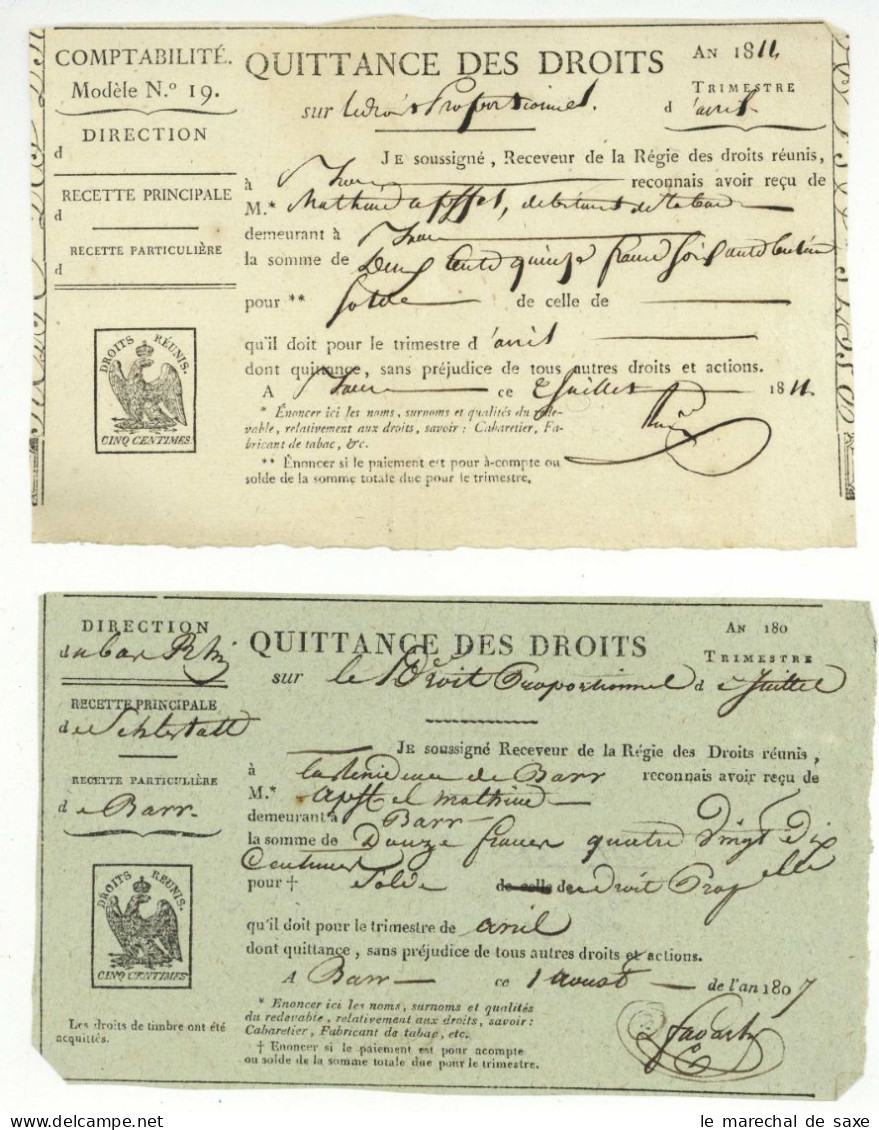 COMPTABILITÉ.
Modèle N.º 19.
DIRECTION
d
RECETTE PRINCIPALE
d
RECETTE PARTICULIÈRE
d
DROITS RÉUNIS.
CINQ CENTIMES.
QUITTANCE DES DROITS
sur le droit Proportionnel.
AN 1811.
TRIMESTRE
d'avril
JE soussigné, Receveur de la Régie des droits réunis,
à reconnais avoir reçu de
M.* Mathieu apffel, debitant de tabac
demeurant à
la somme de Deux cents quinze francs
pour ** Solde de celle de
qu'il doit pour le trimestre d'avril
dont quittance, sans préjudice de tous autres droits et actions.
A ce 2 Juillet 1811.
* Énoncer ici les noms, surnoms et qualités du rede-
vable, relativement aux droits, savoir : Cabaretier, Fa-
bricant de tabac, &c.
** Énoncer si le paiement est pour à-compte ou
solde de la somme totale due pour le trimestre.
DIRECTION
du bas Rhin
RECETTE PRINCIPALE
de Schlestatt
RECETTE PARTICULIÈRE
de Barr.
DROITS RÉUNIS.
CINQ CENTIMES
Les droits de timbre ont été
acquittés.
QUITTANCE DES DROITS
sur le Droit Proportionnel
AN 180
TRIMESTRE
de Juillet
JE soussigné Receveur de la Régie des Droits réunis,
à de Barr reconnais avoir reçu de
M.* Apffel mathieu
demeurant à Barr
la somme de Douze francs quatre vingt dix
Centimes
pour † Solde de celle de Droit Propelle
qu'il doit pour le trimestre de avril
dont quittance, sans préjudice de tous autres droits et actions.
A Barr ce 1 aoust de l'an 1807
* Enoncer ici les noms, surnoms et qualités
du redevable, relativement aux droits, savoir:
Cabaretier, Fabricant de tabac, etc.
† Enoncer si le paiement est pour acompte
ou solde de la somme totale due pour le trimestre.
le marechal de saxe